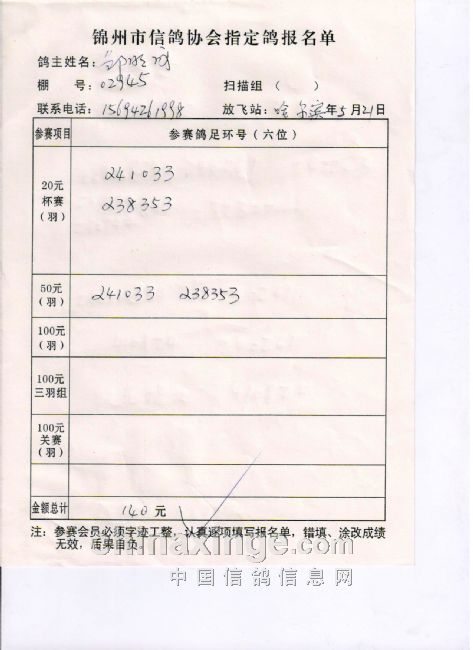 锦州市信鸽协会指定鸽报名单
鸽主姓名：
棚 号：02945 扫描组（ ）
联系电话：15694261998 放飞站：哈尔滨 年5月21日
参赛项目 参赛鸽足环号（六位）
20元
杯赛
（羽）
241033
238353
50元
（羽）
241033 238353
100元
（羽）
100元
三羽组
100元
关赛
（羽）
金额总计 140 元
注：参赛会员必须字迹工整，认真逐项填写报名单，错填、涂改成绩
无效，后果自负。
chinaxinge.com
中国信鸽信息网